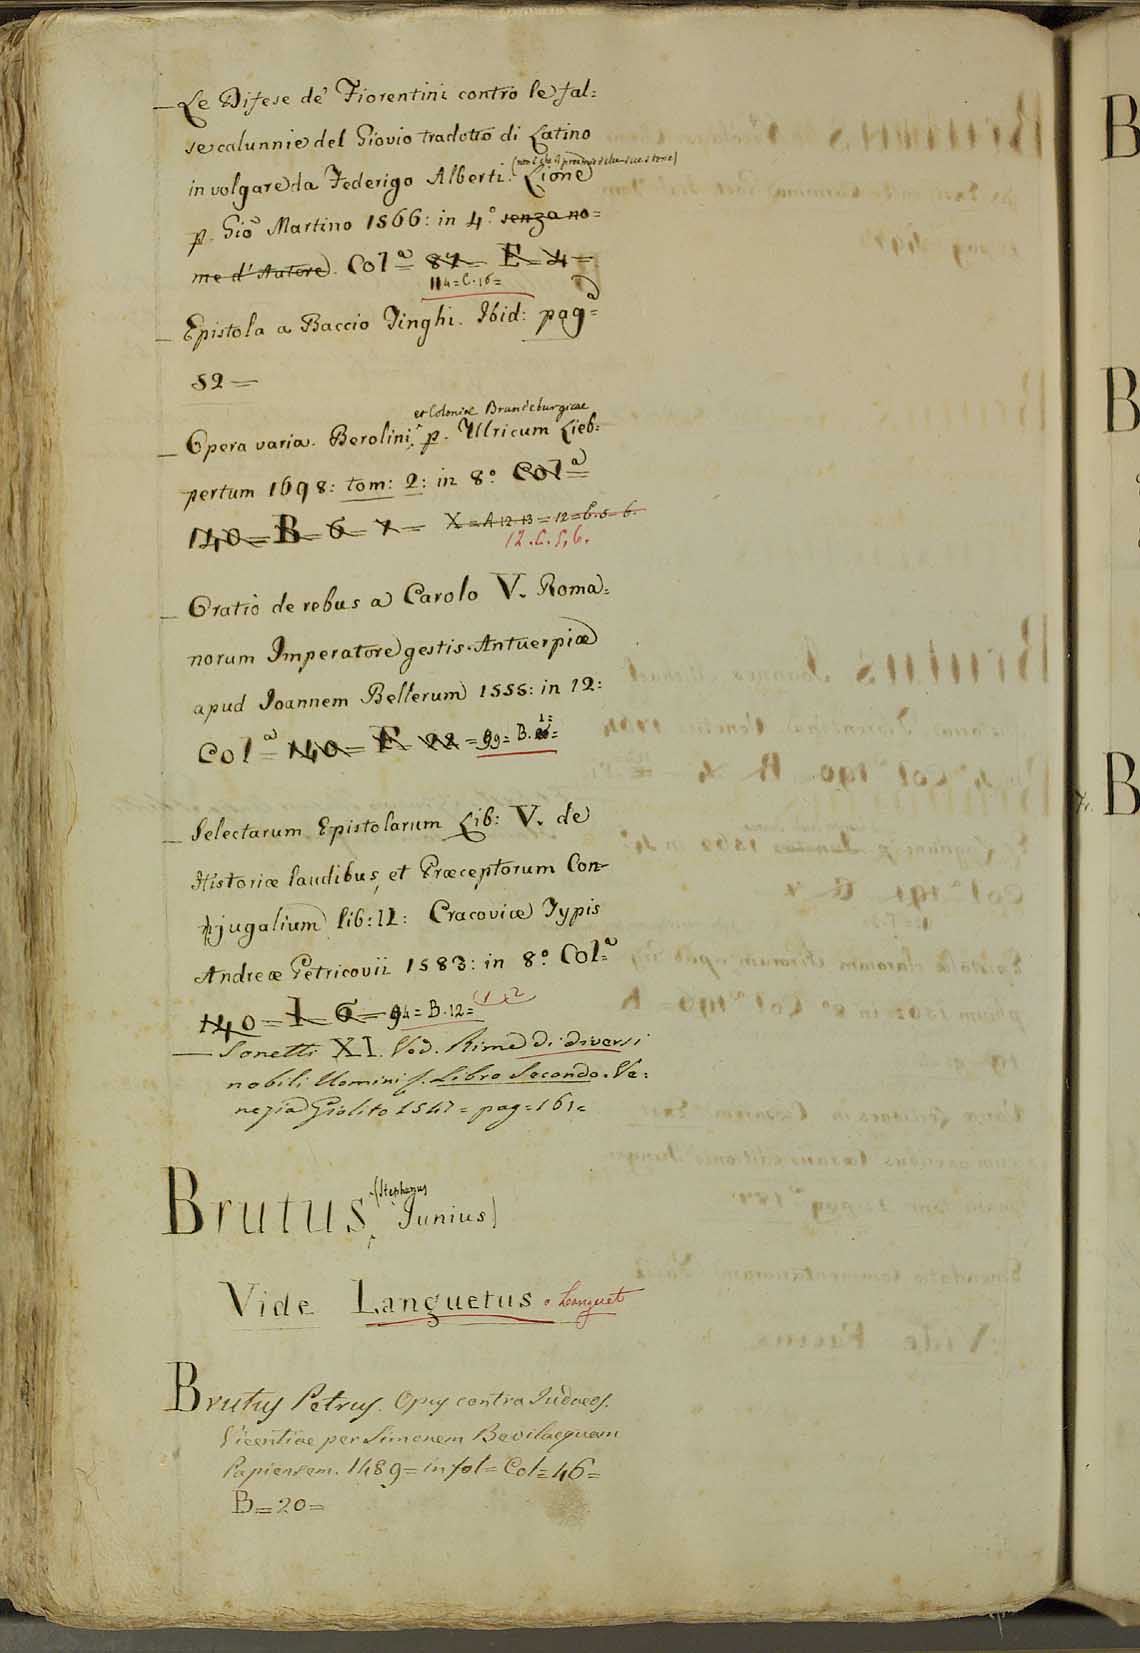 — Le Difese de' Fiorentini contro le fal=
se calunnie del Giovio tradotto di Latino
in volgare da Federigo Alberti. Lione
p. Gio Martino 1566: in 4.° senza no=
me d'Autore. Col.a 87 = E = 4 =
114 = C. 16 =
— Epistola a Baccio Tinghi. Ibid: pag.a
52 =
et Coloniæ Brandeburgicæ
— Opera varia. Berolini p. Ulricum Lieb=
pertum 1698: tom: 2: in 8.° Col.a
140 = B = 6 7 = X = A 12 13 = 12 = C. 5 = 6.
12. C. 5, 6.
— Oratio de rebus a Carolo V. Roma=
norum Imperatore gestis. Antuerpiæ
apud Joannem Bellerum 1555: in 12:
Col.a 140 = F 22 = 99 = B. 1 =
— Selectarum Epistolarum Lib: V. de
Historiæ laudibus, et Præceptorum Con-
jugalium lib: II: Cracoviæ Typis
Andreæ Petricovii 1583: in 8.° Col.a
140 = I 6 = 94 = B. 12 = 1 2
— Sonetti XI. Ved. Rime di diversi
nobili Uomini &. Libro Secondo. Ve=
nezia Giolito 1547 = pag = 161 =
Brutus (Stephanus Junius)
Vide Languetus o Languet
Brutus Petrus. Opus contra Judaeos.
Vicentiae per Simonem Bevilacquam
Papiensem. 1489 = in fol = Col = 46 =
B = 20 =